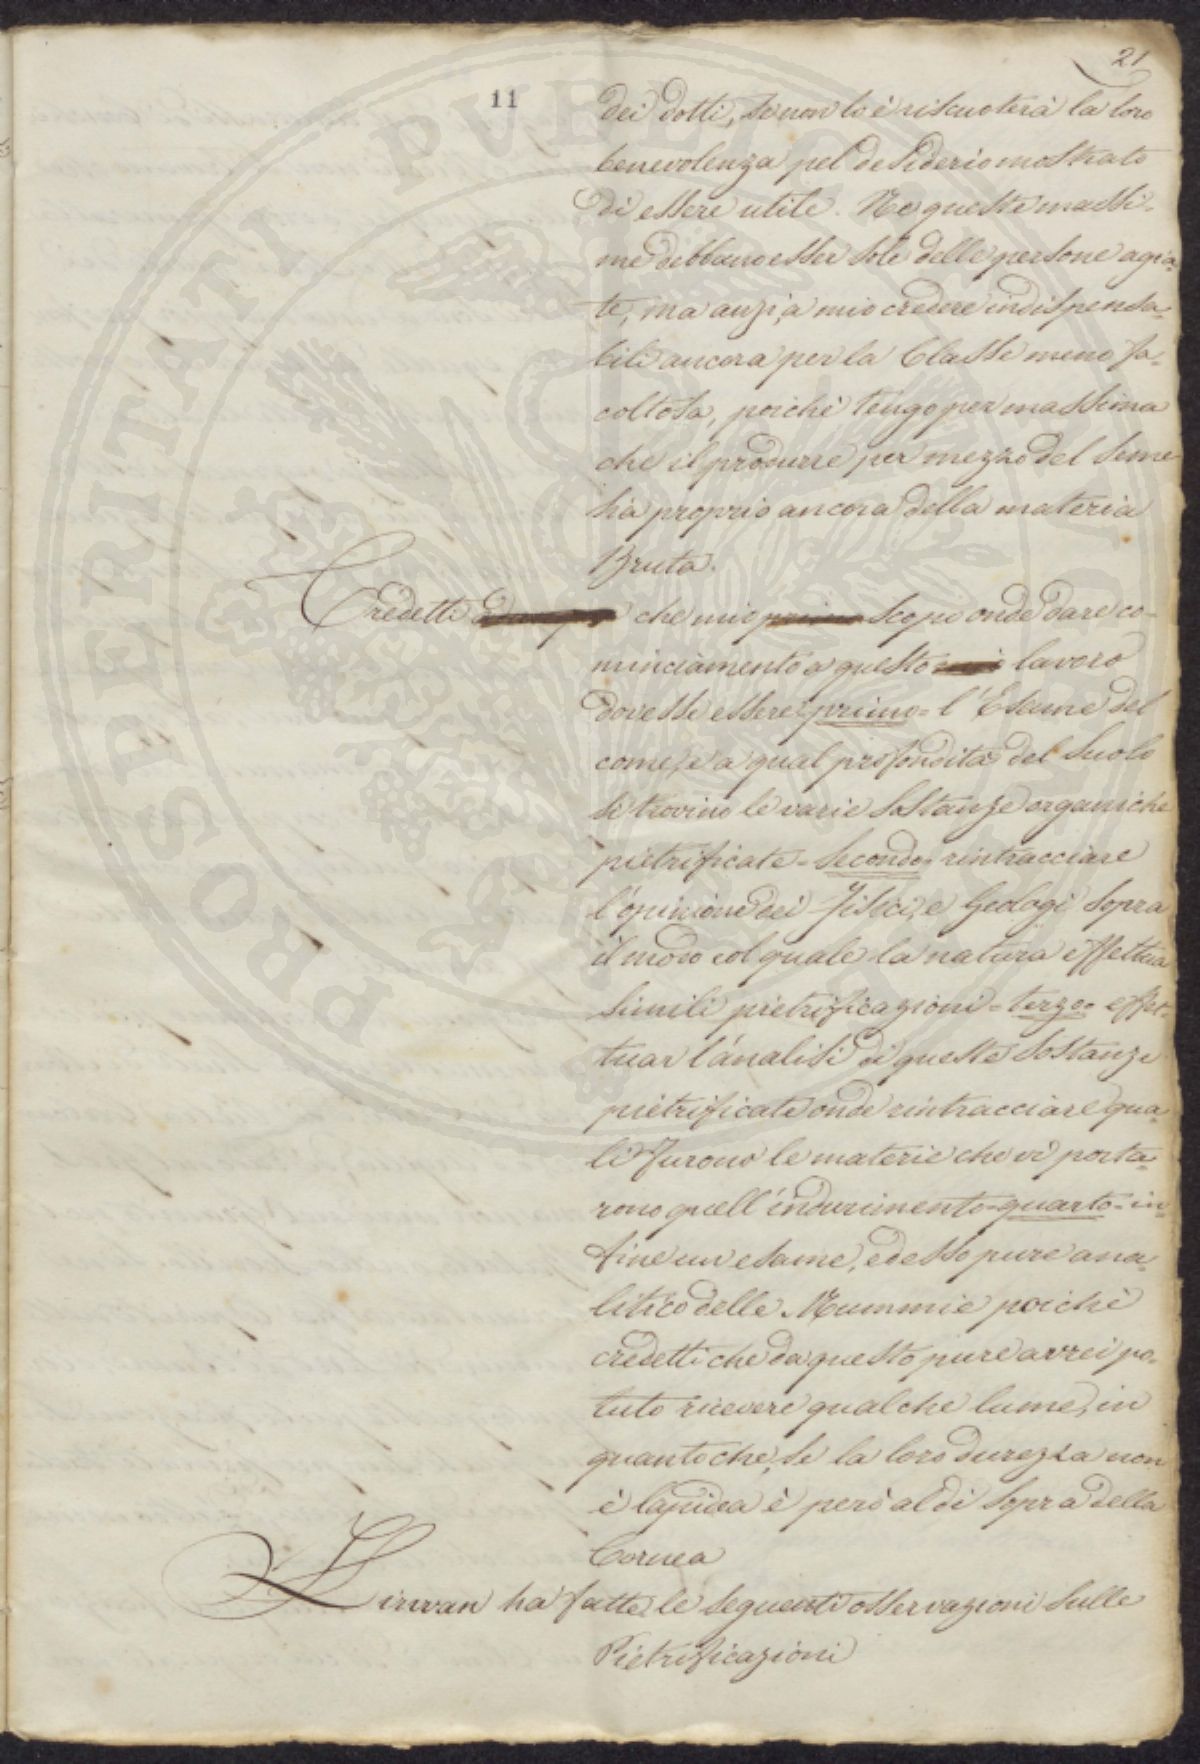 21
11
dei dotti, se non lo è riscuoterà la loro
benevolenza pel desiderio mostrato
di essere utile. Ne queste massi-
me debbano esser sole delle persone agia-
te, ma anzi, a mio credere indispensa-
bili ancora per la Classe meno fa-
coltosa, poichè tengo per massima
che il produrre per mezzo del seme
sia proprio ancora della materia
Bruta.
Credetti che mio primo scopo onde dare co-
minciamento a questo mio lavoro
dovesse essere primo = l'Esame del
come, e a qual profondità del suolo
si trovino le varie sostanze organiche
pietrificate = secondo, rintracciare
l'opinione dei Fisici, e Geologi sopra
il modo col quale la natura effettua
simili pietrificazioni = terzo = effet-
tuar l'analisi di queste sostanze
pietrificate onde rintracciare qua-
li furono le materie che vi porta-
rono quell'indurimento = quarto = in-
fine un esame, ed esso pure ana-
litico delle Mummie poichè
credetti che da questo pure avrei po-
tuto ricevere qualche lume, in
quanto che, se la loro durezza non
è lapidea è però al di sopra della
Cornea
Kirwan ha fatte le seguenti osservazioni sulle
Pietrificazioni
PROSPERITATI PVBLICAE